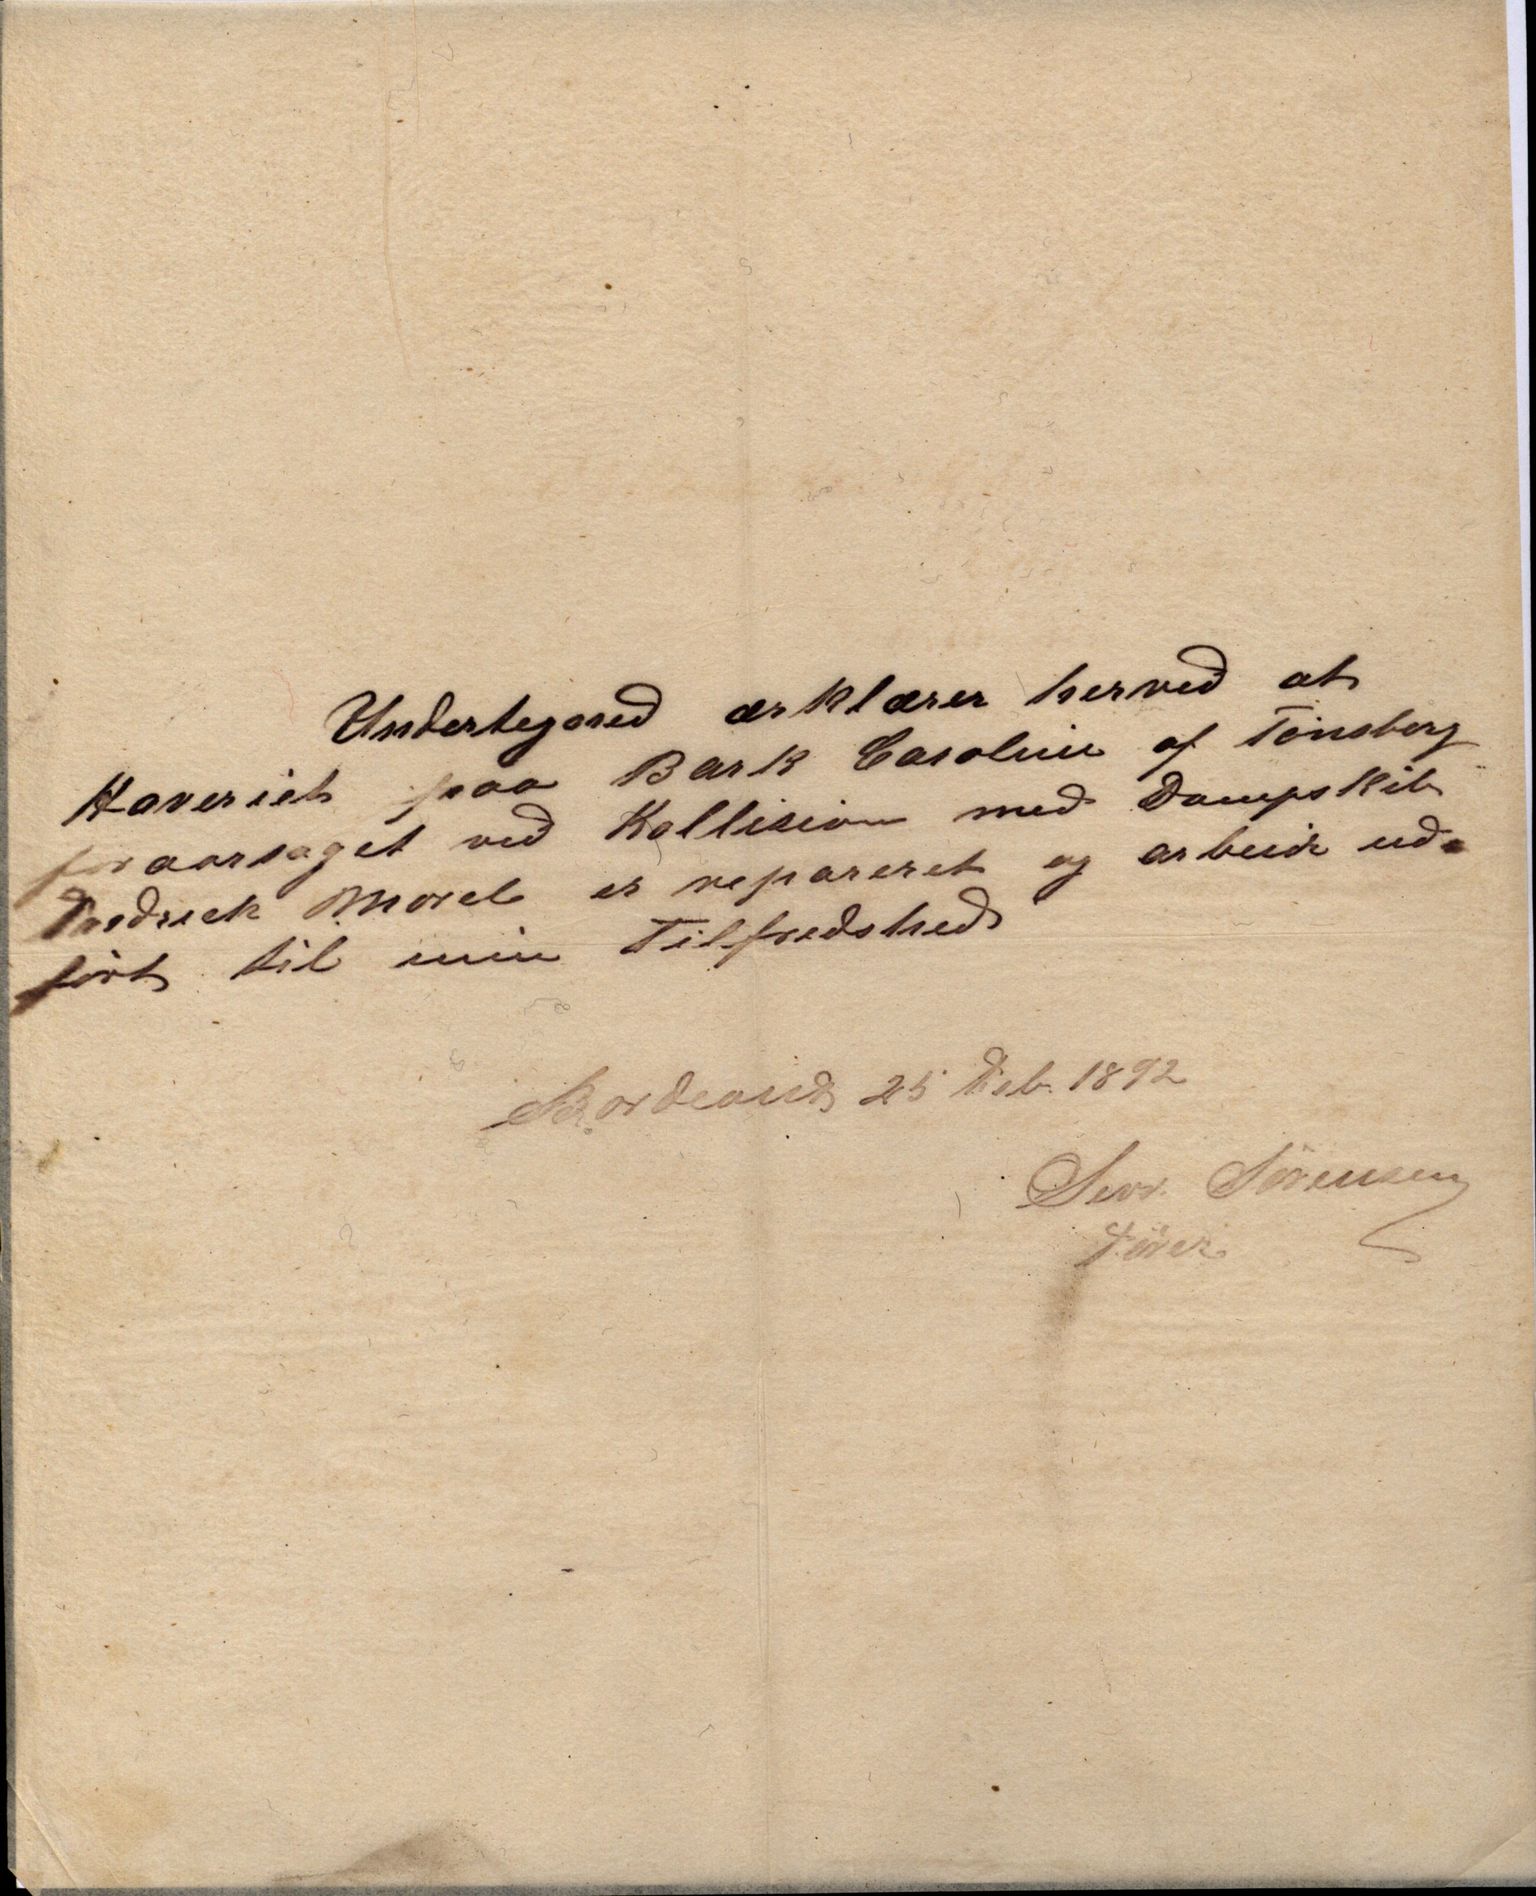 Undertegned ærklærer herved at
Haveriet paa Bark Caroline af Tönsberg
foraarsaget ved Kollision med Dampskib
Fredrick Morel er repareret og arbeide ud-
fört til min Tilfredshed
Bordeaux 25 Feb. 1892
Sevr. Sörensen
Förer